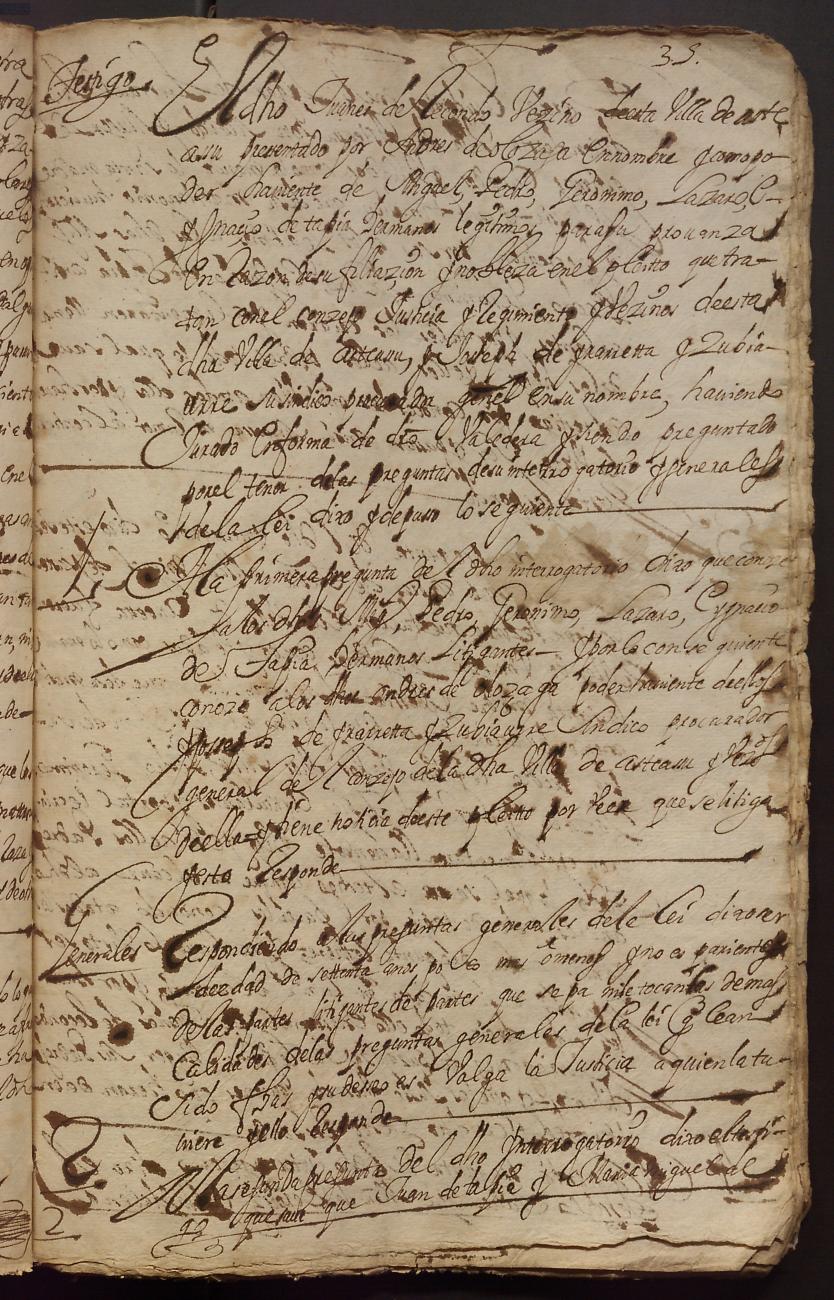 35.
Testigo
El dho Juanes de Recondo Vezino deesta Villa de aste
asu pressentado por Andres de olozaga en nombre y como po
der haviente de Miguel, Pedro, Geronimo, Lazaro, E
Ygnacio de tapia hermanos legitimos parasu provanza
En razon desu filiazion y nobleza enel pleitto que tra
tan conel conzejo Justicia y Regimiento y vezinos deesta
dha Villa de asteasu, y Joseph de yrarretta y Zubia
urre su sindico procurador genel en su nombre, haviendo
Jurado En forma de dro Valedera y siendo preguntado
por el tenor delas preguntas desu interrogatorio y generales
de la lei dixo y depuso lo seguiente
1 A la primera pregunta del dho interrogatorio dixo que conoze
a los dhos Migl, Pedro, Geronimo, Lazaro, E ygnacio
de Tapia hermanos Litigantes y por lo conseguiente
conoze a los dhos andres de olozaga poder haviente deellos
y Joseph de yrarretta y Zubiaurre Sindico procurador
general del conzejo dela dha Villa de asteasu y Vezos
deella y tiene noticia deeste pleitto por veer que se litiga
yesto Responde
Generales
Respondiendo alas preguntas generales dela lei dixo ser
de edad de settenta años poco mas o menos y no es pariente
delas partes litigantes de partes que sepa nile tocan las demas
Calidades delas preguntas generales dela lei q le an
sido fhas y su deseo es Valga la Justicia a quien la tu
viere yello Responde
2 A la segunda pregunta del dho Interrogatorio dixo el testi
go que save que Juan de tapia y Maria miguel al
2